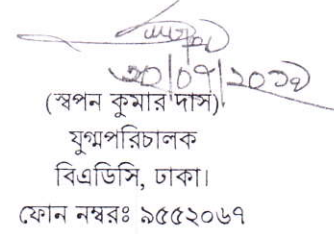 ২০/০৭/২০১৯
(স্বপন কুমার দাস)
যুগ্মপরিচালক
বিএডিসি, ঢাকা।
ফোন নম্বরঃ ৯৫৫২০৬৭